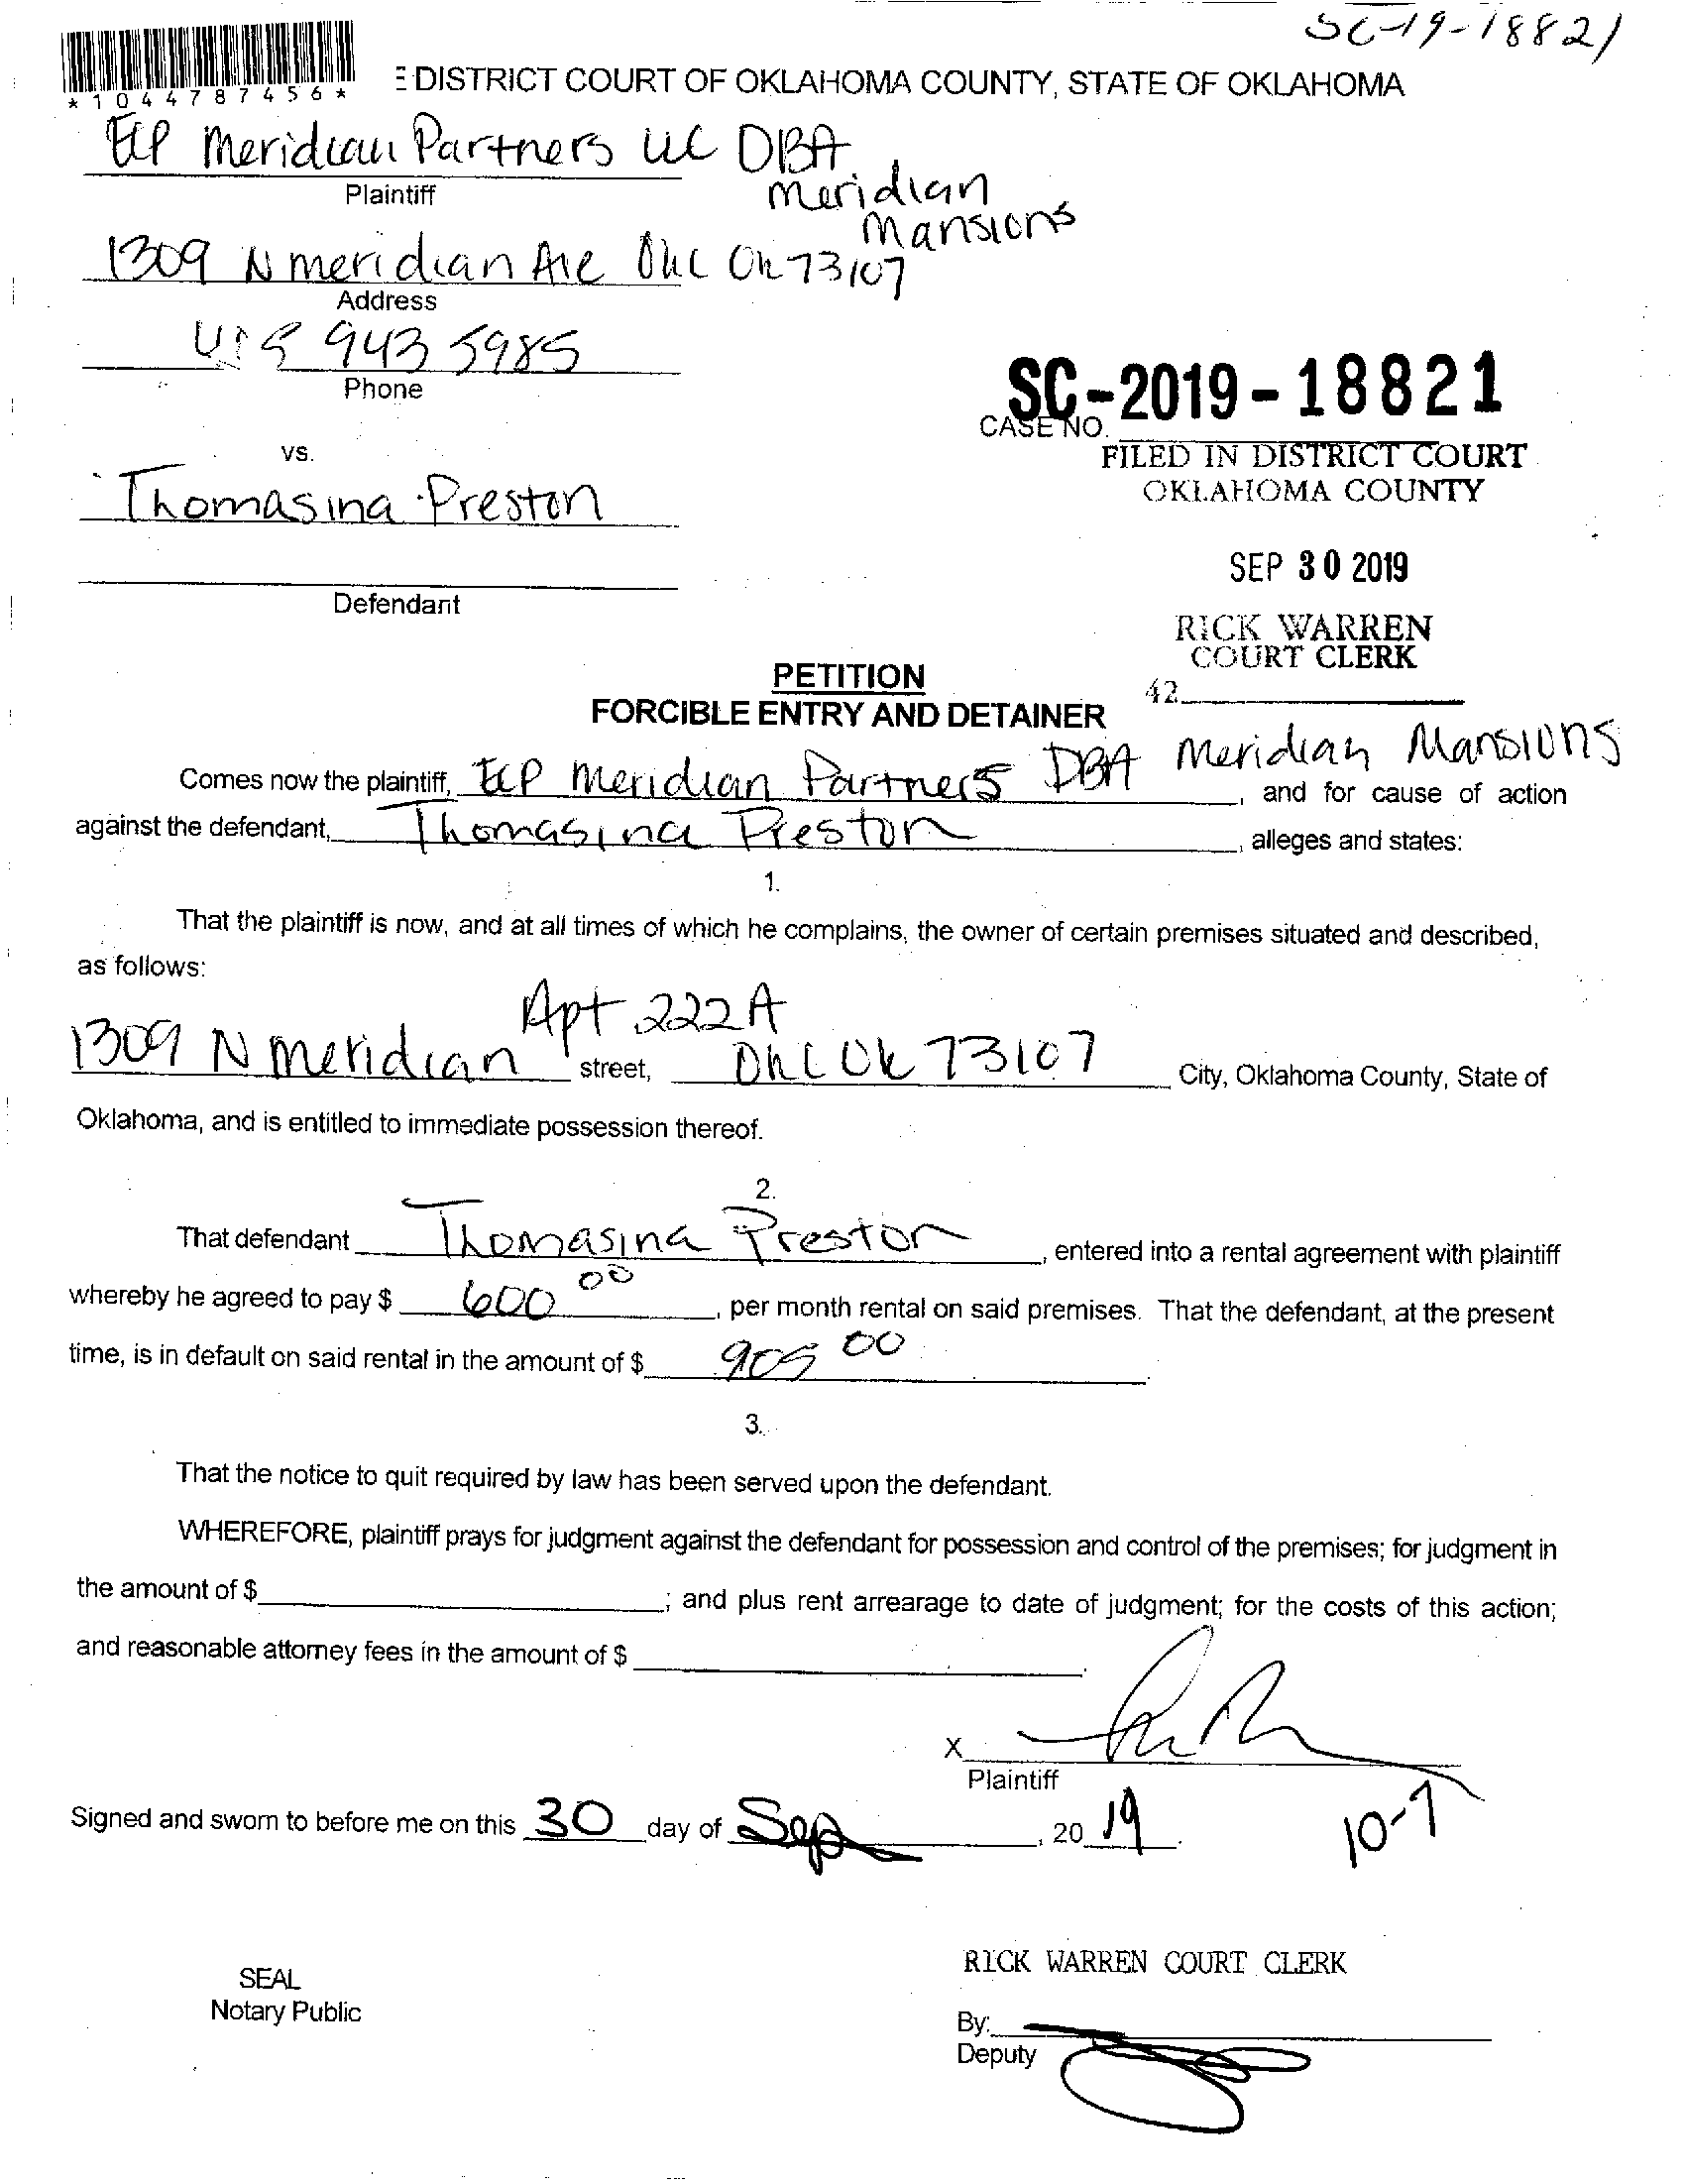 SC-19-18821
*1044787456*
DISTRICT COURT OF OKLAHOMA COUNTY, STATE OF OKLAHOMA
Meridian Partners LLC DBA
Meridian
Mansions
Plaintiff
1309 N Meridian Ave OKC OK 73107
Address
943 5985
Phone
SC-2019-18821
CASE NO.
vs.
FILED IN DISTRICT COURT
OKLAHOMA COUNTY
Thomasina Preston
SEP 30 2019
Defendant
RICK WARREN
COURT CLERK
42
PETITION
FORCIBLE ENTRY AND DETAINER
Comes now the plaintiff, Meridian Partners DBA Meridian Mansions, and for cause of action
against the defendant, Thomasina Preston, alleges and states:
1.
That the plaintiff is now, and at all times of which he complains, the owner of certain premises situated and described,
as follows:
Apt 222A
1309 N Meridian street, OKC OK 73107 City, Oklahoma County, State of
Oklahoma, and is entitled to immediate possession thereof.
2.
That defendant Thomasina Preston, entered into a rental agreement with plaintiff
whereby he agreed to pay $ 600 00, per month rental on said premises. That the defendant, at the present
time, is in default on said rental in the amount of $ 905 00.
3.
That the notice to quit required by law has been served upon the defendant.
WHEREFORE, plaintiff prays for judgment against the defendant for possession and control of the premises; for judgment in
the amount of $ ; and plus rent arrearage to date of judgment; for the costs of this action;
and reasonable attorney fees in the amount of $ .
X
Plaintiff
Signed and sworn to before me on this 30 day of Sep, 20 19.
10-7
SEAL
Notary Public
RICK WARREN COURT CLERK
By:
Deputy